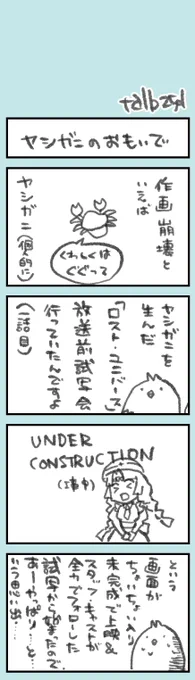 ヤシガニのおもいで
作画崩壊と
いえば
ヤシガニ(個人的に)
くわしくは
ぐぐって
ヤシガニを
生んだ
「ロスト・ユニバース」
放送前試写会
行っていたんですよ
(一話目)
UNDER
CONSTRUCTION
(工事中)
という
画面が
ちょいちょい入り
未完成で上映&
スタッフ・キャストが
全力でフォローした
試写から始まったので
あーやっぱり…と…
いう思い出…